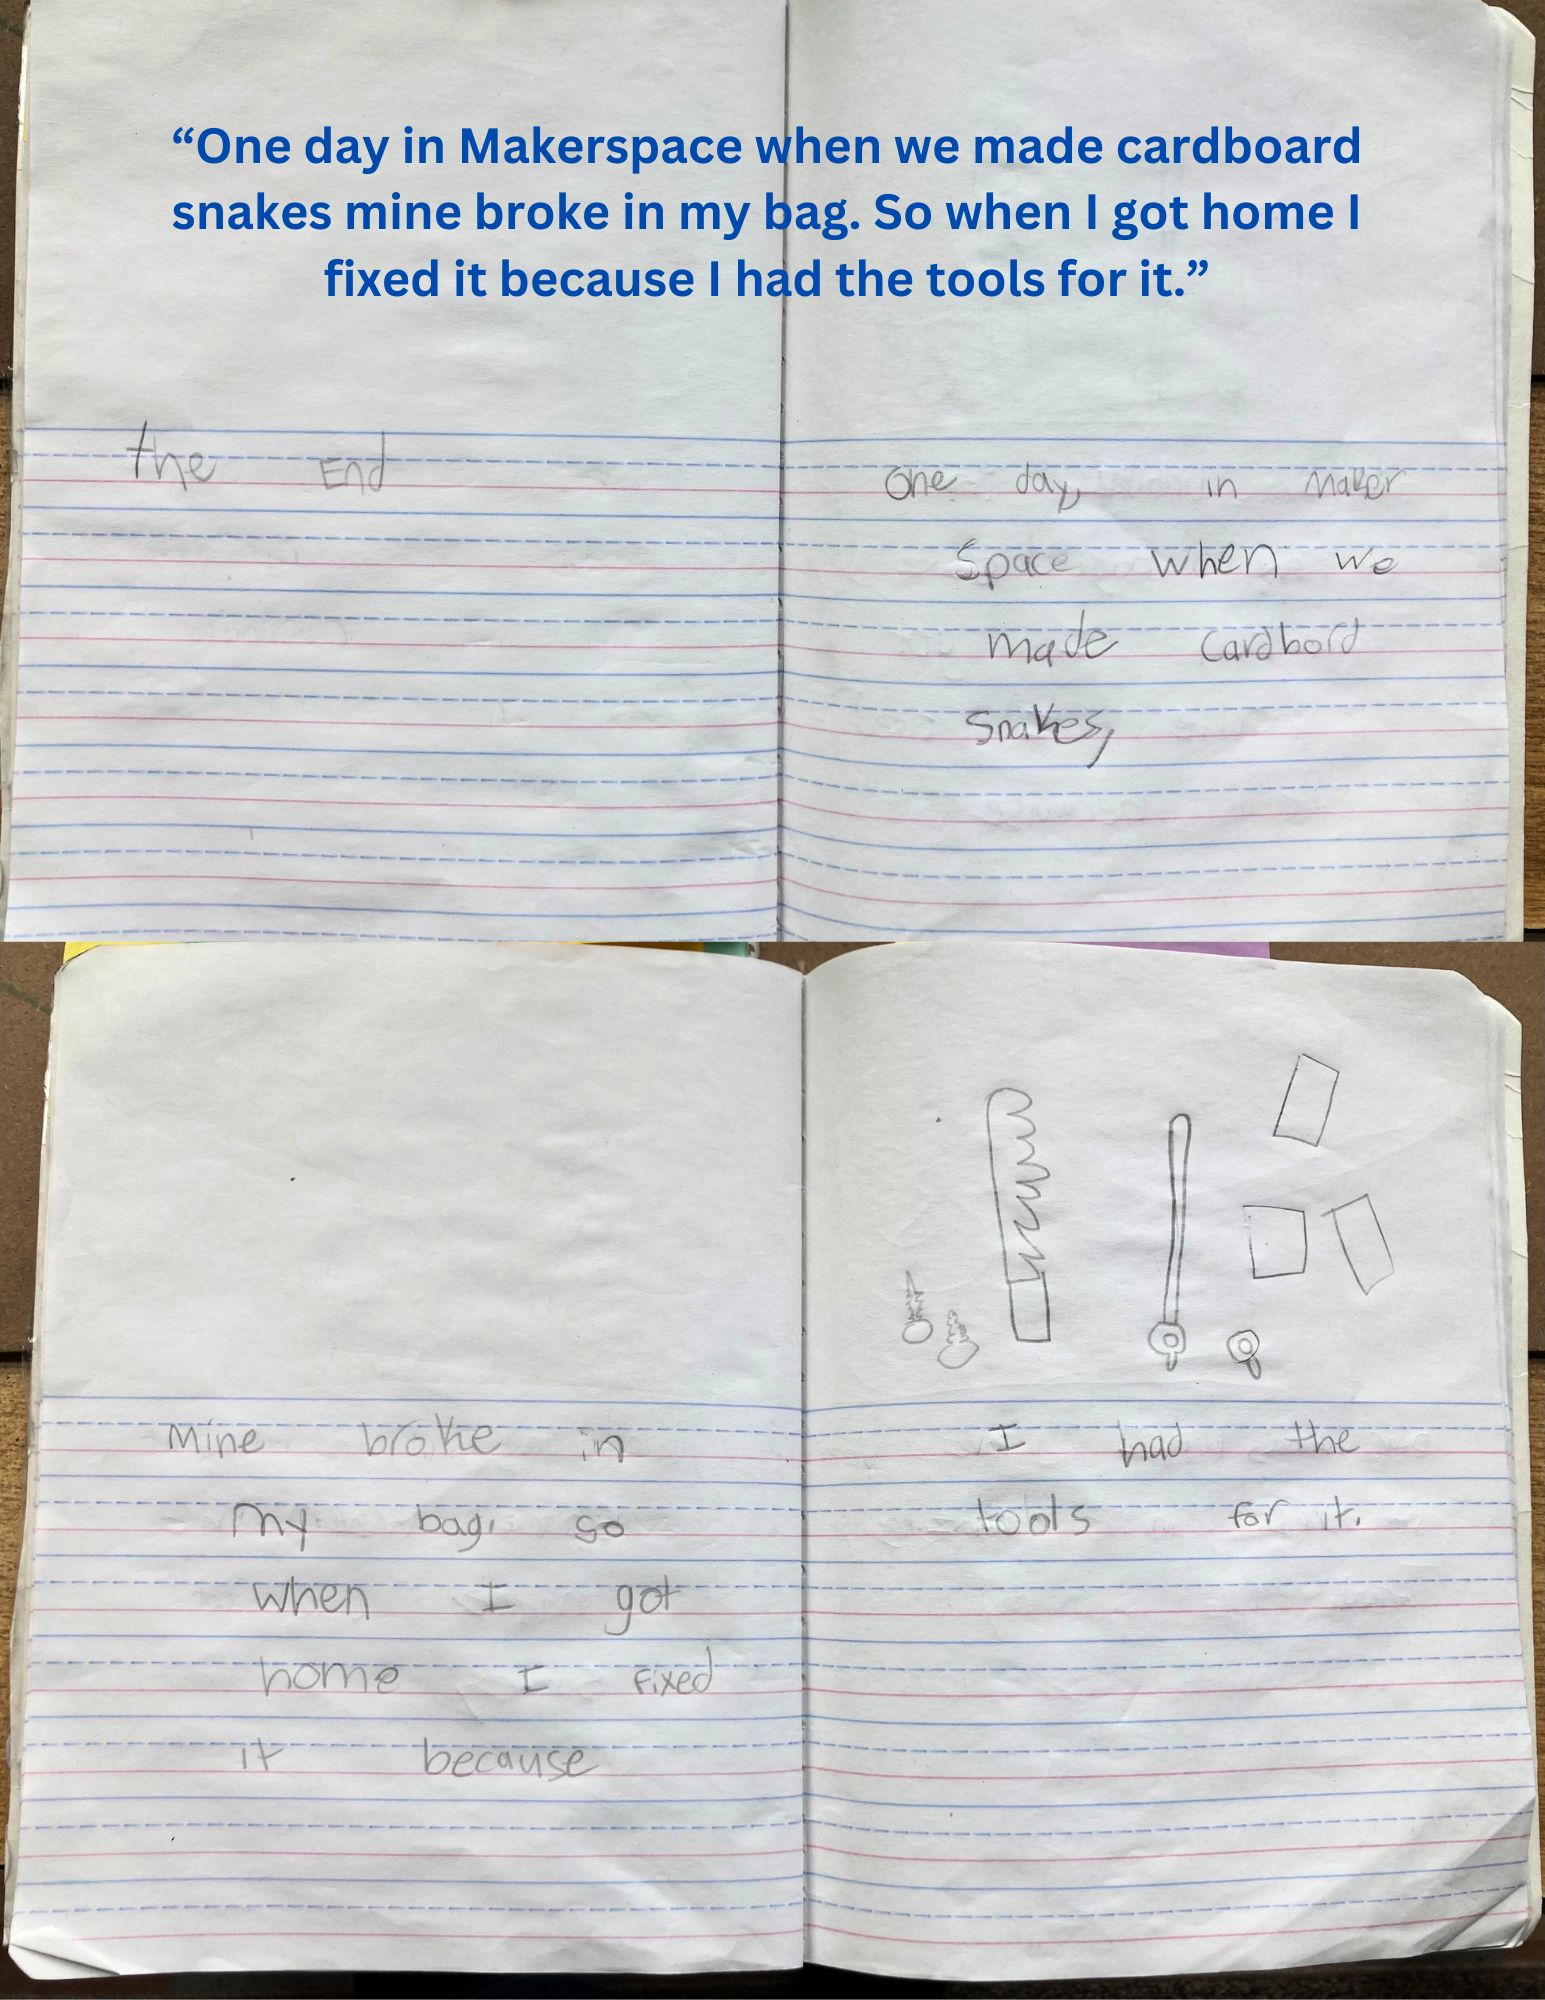 “One day in Makerspace when we made cardboard
snakes mine broke in my bag. So when I got home I
fixed it because I had the tools for it.”
the End
One day, in Maker
Space when we
made Cardbord
Snakes,
Mine broke in
my bag. so
when I got
home I Fixed
it because
I had the
tools for it.